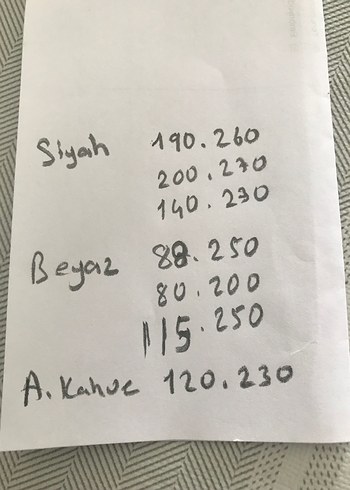 Siyah 190.260
200.270
140.230
Beyaz 88.250
80.200
115.250
A.Kahve 120.230